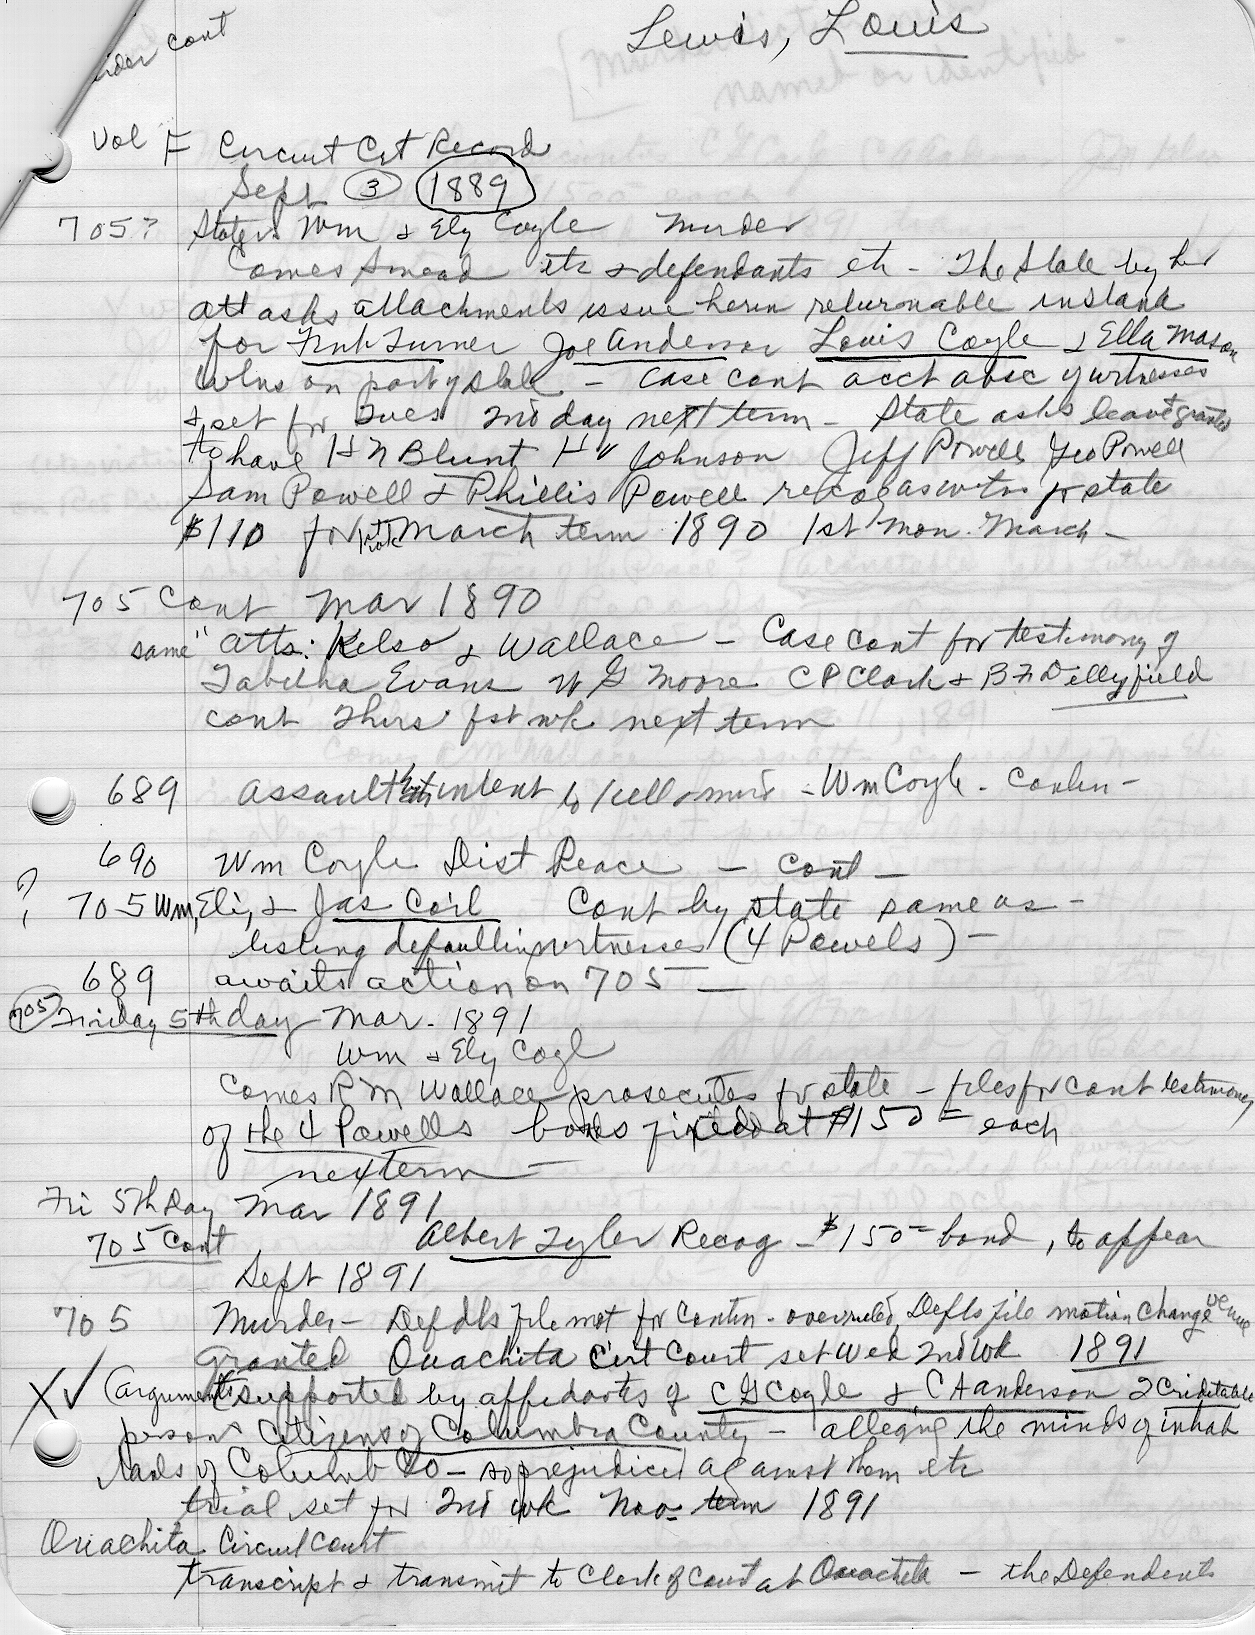 Lewis, Louis
cont
Vol F Circuit Crt Record
Sept 3 1889
705? State vs Wm & Ely Coyle Murder
Comes Smead etc & defendants etc - The State by her
att asks attachments issue herin returnable instant
for Frnk Turner Joe Anderson Louis Coyle & Ella Mason
witns on part of state - Case cont acct absc of witnesses
& set for Tues 2nd day next term - State asks leave & granted
to have H N Blunt H V Johnson Jeff Powell Geo Powell
Sam Powell & Phillis Powell recog as witns for state
$110 for March term 1890 1st Mon. March -
705 Cont Mar 1890
same " Atts: Kelso & Wallace - Case cont for testimony of
Tabitha Evans W G Moore C P Clark & B F Dellyfield
cont Thurs fst wk next term
689 Assault intent to kill & murd - Wm Coyle - Contin -
690 Wm Coyle Dist Peace - Cont -
? 705 Wm, Eli, & Jas Coil Cont by state same as -
listing defaultin witnesses (4 Powels) -
689 awaits action on 705 -
705 Friday 5th day Mar. 1891
Wm & Ely Cogl
Comes R M Wallace prosecutes for state - files for cont testimony
of the 4 Powells bonds fixed at $150 = each
next term -
Fri 5th Day Mar 1891
705 Cont Albert Tyler Recog - $150 = bond, to appear
Sept 1891
705 Murder - Defdts file mot for Contin - overruled, Defts file motion change venue
granted Ouachita Cirt Court set Wed 2nd wk 1891
X✓ (arguments supported by affidavits of C G Coyle & C A Anderson 2 Criditable
person Citizens of Columbia County - alleging the minds of inhab
itants of Columb Co - so prejudiced against them etc
trial set for 2nd wk Nov. term 1891
Ouachita Circuit Court
transcript & transmit to Clerk of Court at Ouachita - the Defendents